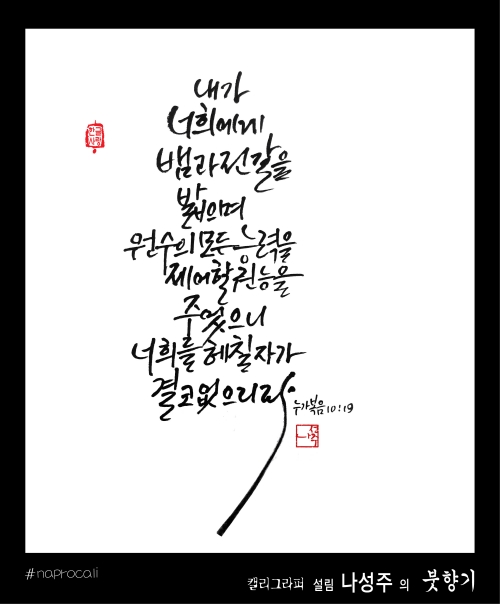 내가
너희에게
뱀과 전갈을
밟으며
원수의 모든 능력을
제어할 권능을
주었으니
너희를 해칠 자가
결코 없으리라.
누가복음 10:19
#naprocali
캘리그라피 설림 나성주 의 붓향기